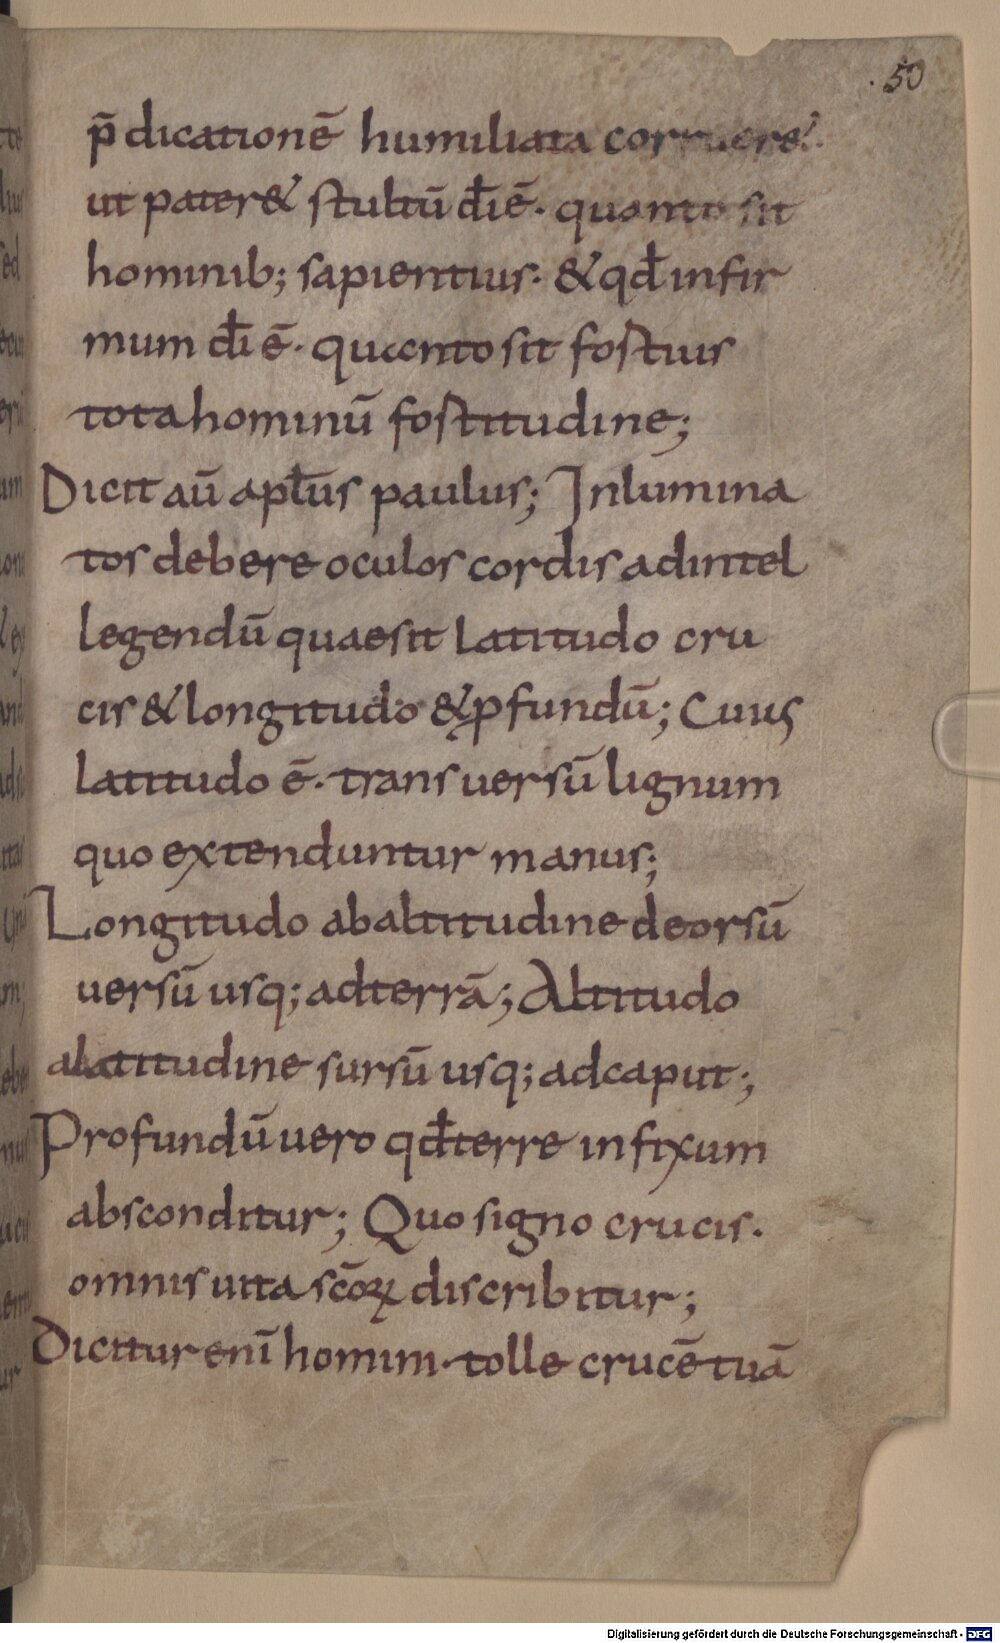 50
p̄dicationē humiliata corruere.
ut pater& stultū dī ē. quanto sit
hominib; sapientius. & qđ infir
mum dī ē. quanto sit fortius
tota hominū fortitudine;
Dicit aū aptus paulus; Inlumina
tos debere oculos cordis ad intel
legendū quae sit latitudo cru
cis & longitudo & pfundū; Cuius
latitudo ē. transversū lignum
quo extenduntur manus;
Longitudo ab altitudine deorsū
uersū usq; ad terrā; Altitudo
a latitudine sursū usq; ad caput;
Profundū uero qđ terre infixum
absconditur; Quo signo crucis.
omnis uita scōꝝ discribitur;
Dicitur enī homini. tolle crucē tuā
Digitalisierung gefördert durch die Deutsche Forschungsgemeinschaft - DFG